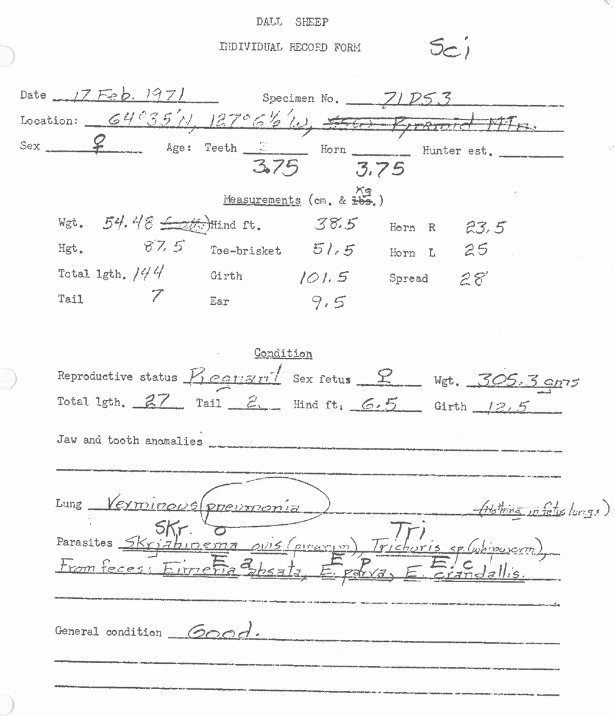 DALL SHEEP
INDIVIDUAL RECORD FORM Sci
Date 17 Feb. 1971 Specimen No. 71DS3
Location: 64°35'N, 127°6½'W, Pyramid Mtn.
Sex ♀ Age: Teeth 3.75 Horn 3.75 Hunter est.
Measurements (cm. & lbs. Kg)
Wgt. 54.48 Hind ft. 38.5 Horn R 23.5
Hgt. 87.5 Toe-brisket 51.5 Horn L 25
Total lgth. 144 Girth 101.5 Spread 28
Tail 7 Ear 9.5
Condition
Reproductive status Pregnant Sex fetus ♀ Wgt. 305.3 gms
Total lgth. 27 Tail 2 Hind ft. 6.5 Girth 12.5
Jaw and tooth anomalies
Lung Verminous pneumonia (Nothing in fetus lungs)
Skr. o Tri
Parasites Skrjabinema ovis (pinworm), Trichuris sp (whipworm),
E a E p E. c
From feces: Eimeria absata, E. parva, E. crandallis.
General condition Good.